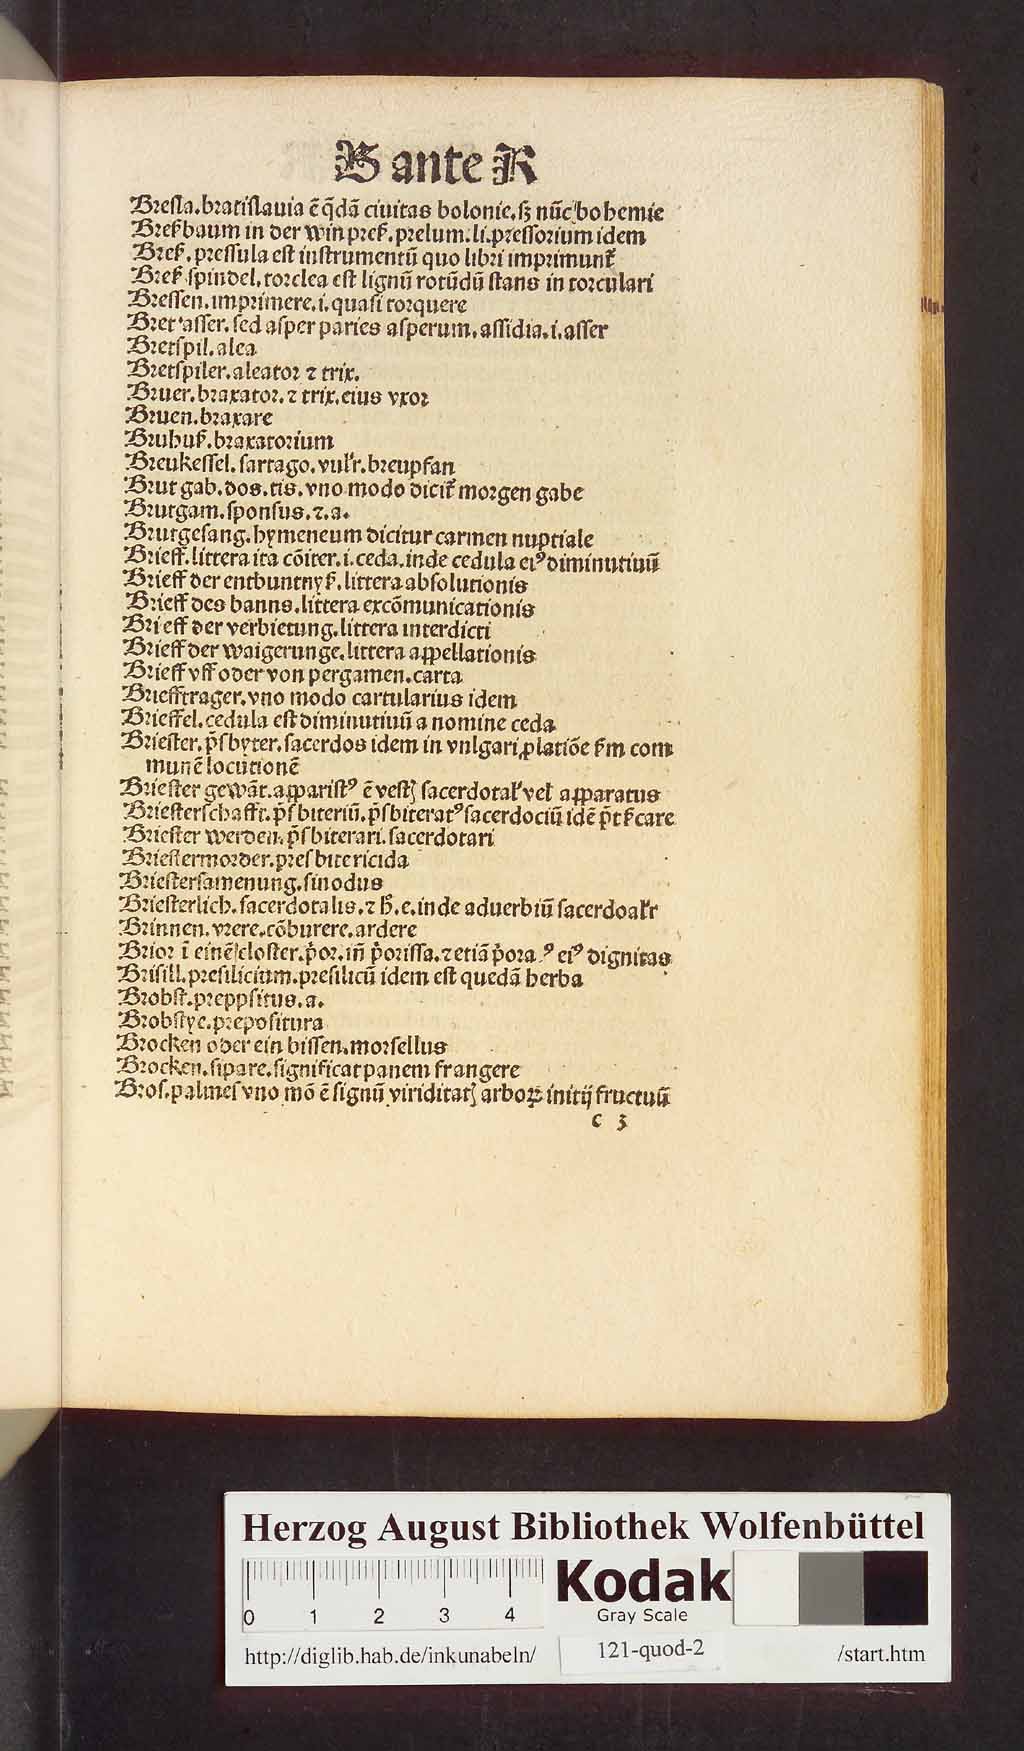 B ante R
Bresla.bratislauia ē q̄dā ciuitas bolonie.sʒ nūc bohemie
Breſzbaum in der win preſz.prelum.li.pressorium idem
Breſz.pressula est instrumentū quo libri imprimunt᷑
Breſz spindel.torclea est lignū rotūdū stans in torculari
Bressen.imprimere.i.quasi torquere
Bret asser.sed asper paries asperum.assidia.i.asser
Bretspil.alea
Bretspiler.aleator ⁊ trix.
Bruer.braxator.⁊ trix.eius vxor
Bruen.braxare
Bruhuſz.braxatorium
Breukessel.sartago.vulr̄.breupfan
Brut gab.dos.tis.vno modo dicit᷑ morgen gabe
Brutgam.sponsus.⁊.a.
Brutgesang.hymeneum dicitur carmen nuptiale
Brieff.littera ita cōiter.i.ceda.inde cedula eiꝰ diminutiuū
Brieff der entbuntnyſz.littera absolutionis
Brieff des banns.littera excōmunicationis
Brieff der verbietung.littera interdicti
Brieff der waigerunge.littera appellationis
Brieff vff oder von pergamen.carta
Briefftrager.vno modo cartularius idem
Brieffel.cedula est diminutiuū a nomine ceda
Briester.p̄sbyter.sacerdos idem in vulgari ꝓlatiōe ſm com
munē locutionē
Briester gewāt.apparistꝰ ē vestꝭ sacerdotal̄ vel apparatus
Briesterschafft.p̄sbiteriū.p̄sbiteratꝰ sacerdociū idē
Briester werden.p̄sbiterari.sacerdotari
Briestermorder.presbitericida
Briestersamenung.sinodus
Briesterlich.sacerdotalis.⁊ h̄.e.inde aduerbiū sacerdoalr̄
Brinnen.vrere.cōburere.ardere
Brior ī einē closter.p̄or.in̄ p̄orissa.⁊ etiā p̄ora.ꝰ eiꝰ dignitas
Brisill.presilicium.presilicū idem est quedā herba
Brobst.preppsitus.a.
Brobstye.prepositura
Brocken oder ein bissen.morsellus
Brocken.sipare.significat panem frangere
Bros.palmes vno mō ē signū viriditatꝭ arboꝝ initij fructuū
c 3
Herzog August Bibliothek Wolfenbüttel
0 1 2 3 4
Kodak
Gray Scale
http://diglib.hab.de/inkunabeln/ 121-quod-2 /start.htm